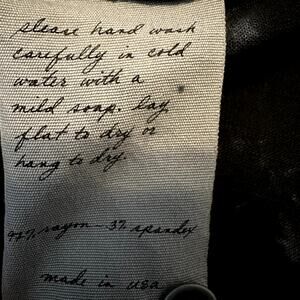 please hand wash
carefully in cold
water with a
mild soap. lay
flat to dry or
hang to dry.
97% rayon - 3% spandex
made in usa